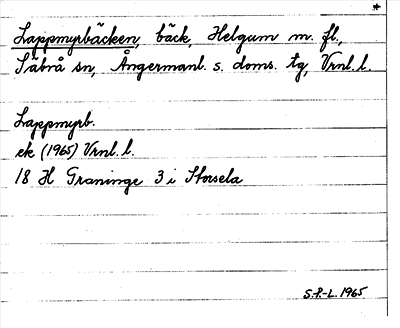 *
Lappmyrbäcken, bäck, Helgum m. fl.,
Säbrå sn, Ångermanl. s. doms. tg, Vrnl. l.
Lappmyrb.
ek (1965) Vrnl. l.
18 H Graninge 3 i Storsela
S.P.-L. 1965